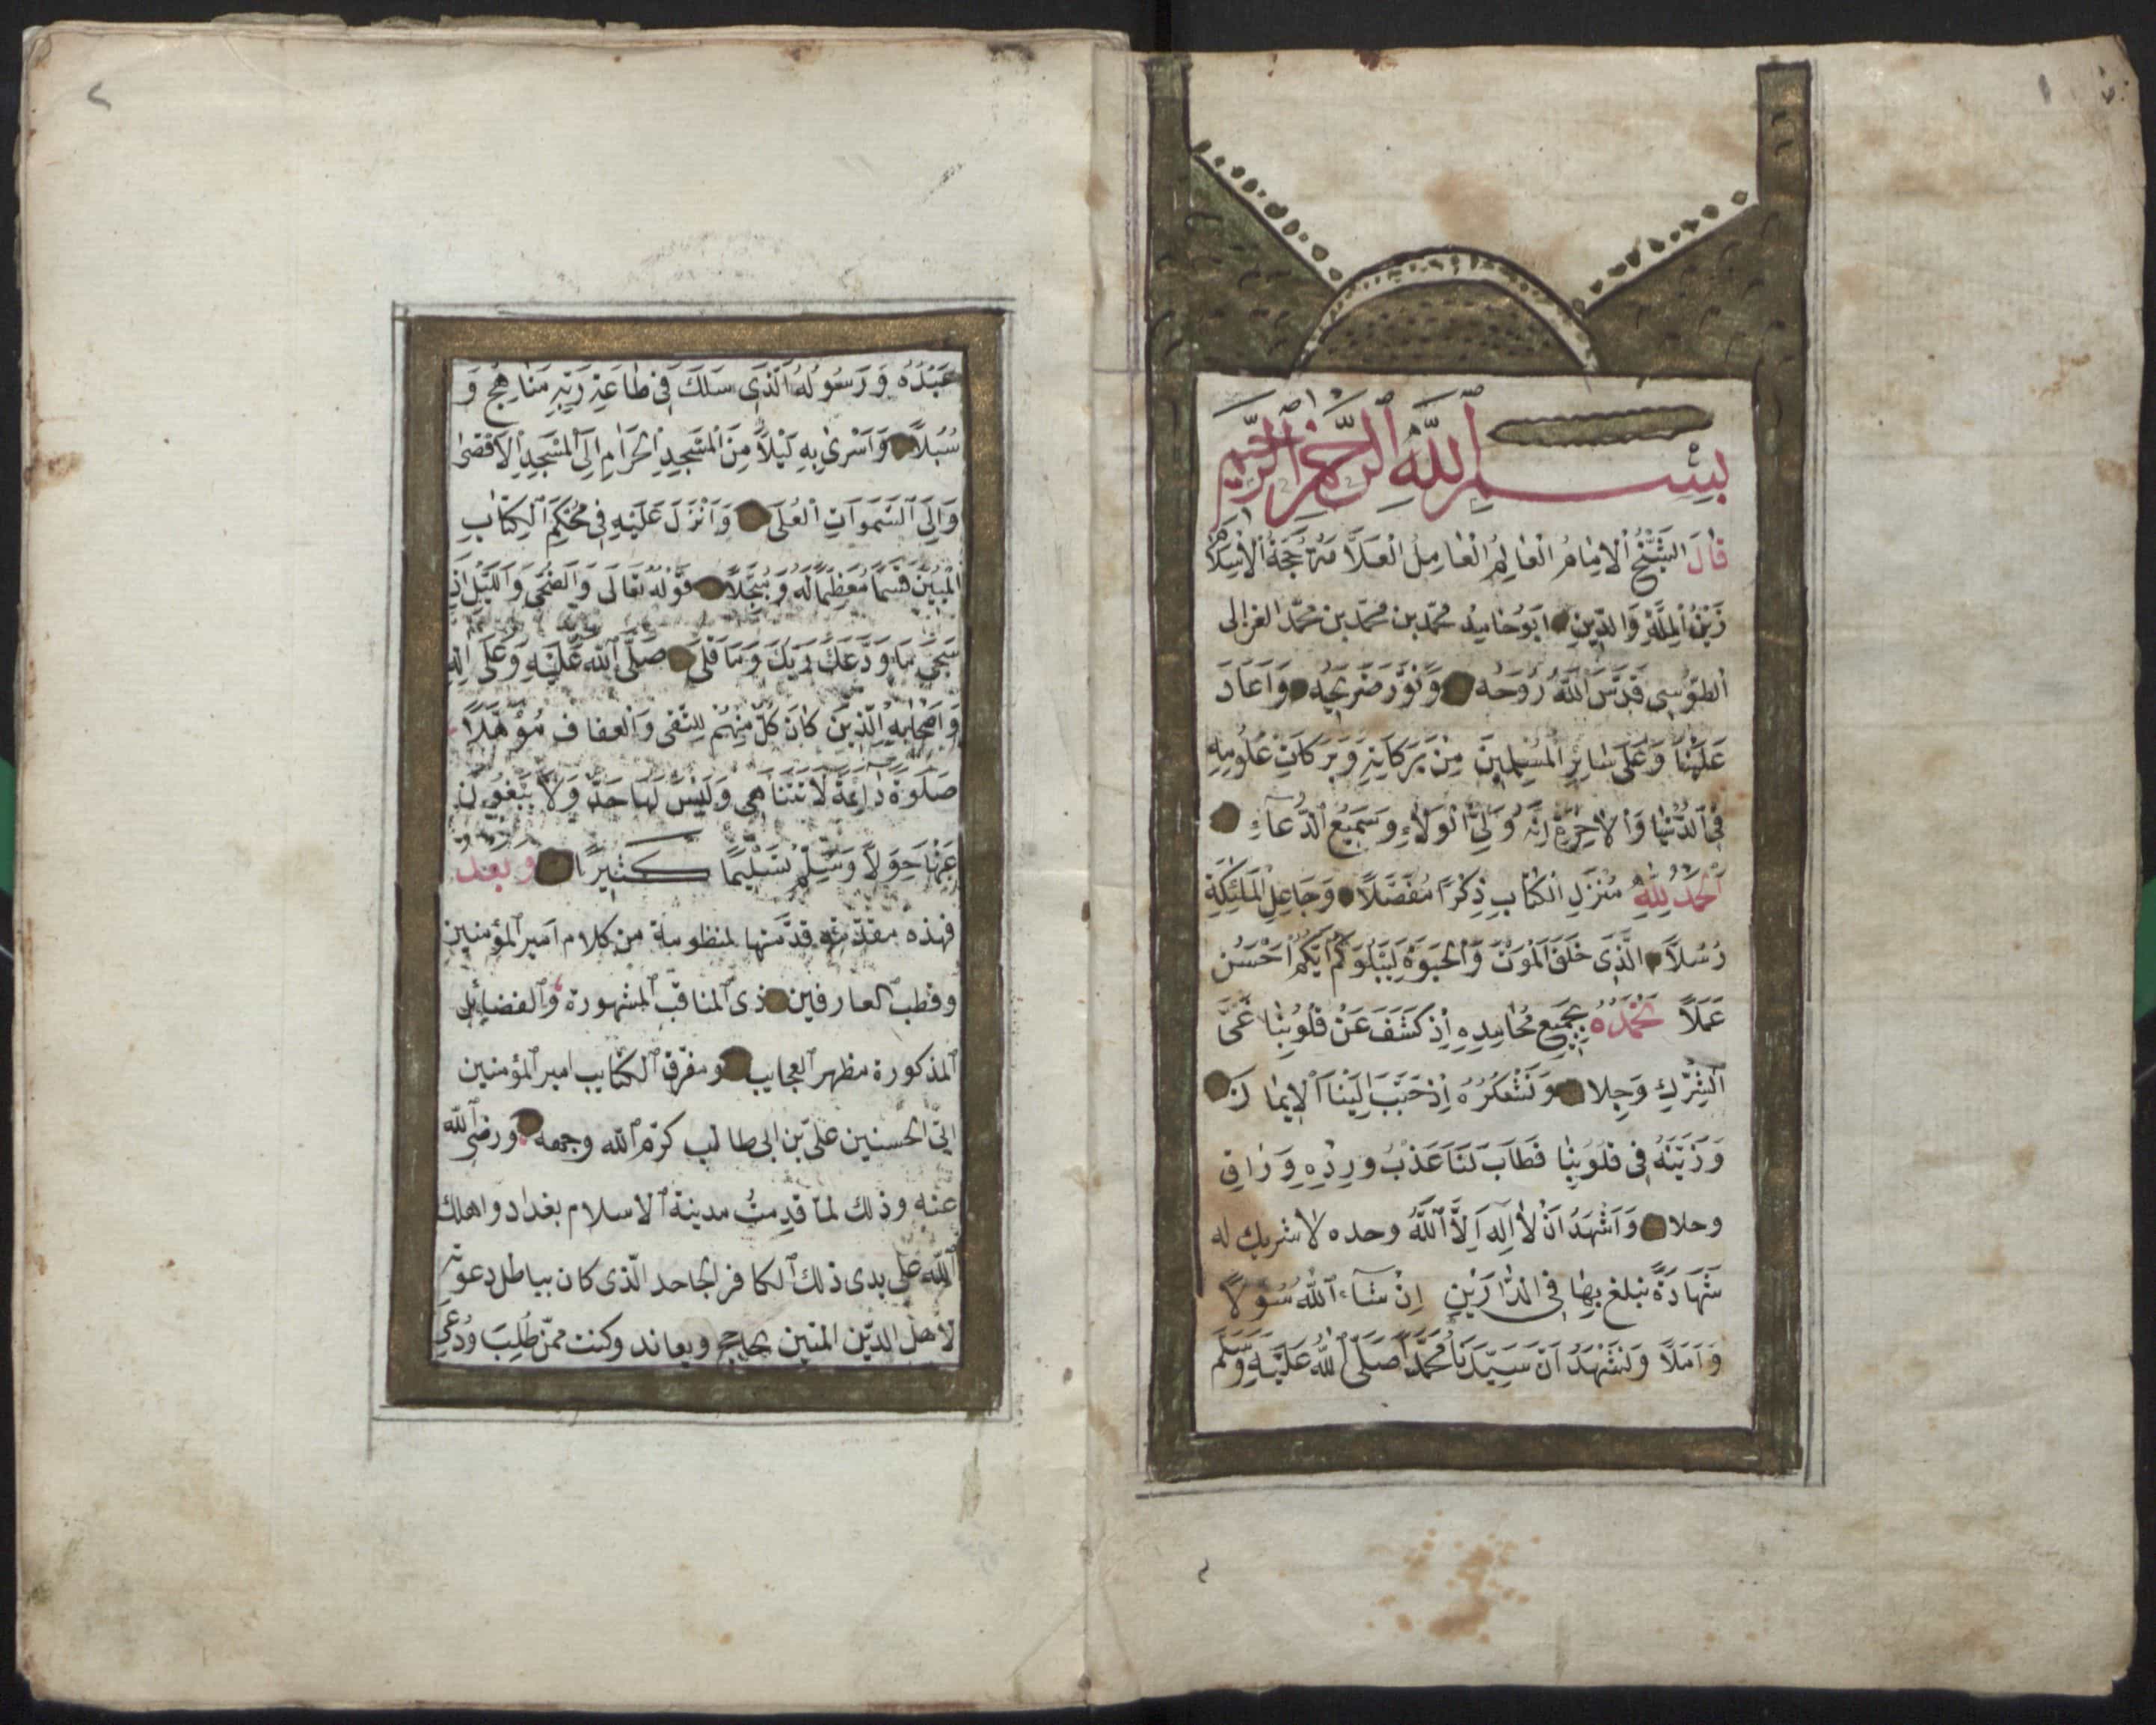 ١
بِسْمِ اللَّهِ الرَّحْمٰنِ الرَّحِيمِ
قَالَ الشَّيْخُ الْاِمَامُ الْعَالِمُ الْعَامِلُ الْعَلَّامَةُ حُجَّةُ الْاِسْلَامِ
زَيْنُ الْمِلَّةِ وَالدِّينِ اَبُو حَامِدْ مُحَمَّد بن مُحَمَّد بن مُحَمَّد الغزالى
الطُّوسِى قَدَّسَ اللَّهُ رُوحَهُ وَنَوَّرَ ضَرِيحَهُ وَاَعَادَ
عَلَيْنَا وَعَلَى سَائِرِ الْمُسْلِمِينَ مِنْ بَرَكَاتِهِ وَبَرَكَاتِ عُلُومِهِ
فِى الدُّنْيَا وَالْاٰخِرَةِ اِنَّهُ وَلِىُّ الْوَلَاءِ وَسَمِيعُ الدُّعَاءِ
اَلْحَمْدُ لِلّٰهِ مُنْزِلِ الْكِتَابِ ذِكْرًا مُفَصَّلًا وَجَاعِلِ الْمَلٰئِكَةِ
رُسُلًا الَّذِى خَلَقَ الْمَوْتَ وَالْحَيٰوةَ لِيَبْلُوَكُمْ اَيُّكُمْ اَحْسَنُ
عَمَلًا نَحْمَدُهُ بِجَمِيعِ مَحَامِدِهِ اِذْ كَشَفَ عَنْ قُلُوبِنَا غَمَّى
الشِّرْكِ وَجلا وَنَشْكُرُهُ اِذْ حَبَّبَ اِلَيْنَا الْاِيمَانَ
وَزَيَّنَهُ فِى قُلُوبِنَا فَطَابَ لَنَا عَذْبُ وِرْدِهِ وَرَاقَ
وحلا وَاَشْهَدُ اَنْ لَا اِلٰهَ اِلَّا اللَّهُ وحده لا شريك له
شَهَادَةً نبلغ بِهَا فِى الدَّارَيْنِ اِنْ شَاءَ اللَّهُ سُؤْلًا
وَاَمَلًا وَنَشْهَدُ اَنَّ سَيِّدَنَا مُحَمَّدًا صَلَّى اللَّهُ عَلَيْهِ وَسَلَّمَ
٢
عَبْدُهُ وَرَسُولُهُ الَّذِى سَلَكَ فِى طَاعَةِ رَبِّهِ مَنَاهِجَ وَ
سُبُلًا وَاَسْرٰى بِهِ لَيْلًا مِنَ الْمَسْجِدِ الْحَرَامِ اِلَى الْمَسْجِدِ الْاَقْصٰى
وَاِلَى السَّمٰوَاتِ الْعُلَى وَاَنْزَلَ عَلَيْهِ فِى مُحْكَمِ الْكِتَابِ
الْمُبِينِ قَسَمًا مُعَظِّمًا لَهُ وَمُبَجِّلًا قَوْلُهُ تَعَالَى وَالضُّحَى وَاللَّيْلِ اِذَا
سَجَى مَا وَدَّعَكَ رَبُّكَ وَمَا قَلَى صَلَّى اللَّهُ عَلَيْهِ وَعَلَى اٰلِهِ
وَاَصْحَابِهِ الَّذِينَ كَانَ كُلٌّ مِنْهُمْ لِلتُّقَى وَالْعَفَافِ مُؤَهَّلًا
صَلٰوةً دَائِمَةً لَا تَتَنَاهَى وَلَيْسَ لَهَا حَدٌّ وَلَا يَبْغُونَ
عَنْهَا حِوَلًا وَسَلَّمَ تَسْلِيمًا كَثِيرًا وبعد
فهذه مقدّمة قدّمتها لمنظومة من كلام امير المؤمنين
وقطب العارفين ذى المناقب المشهورة والفضائل
المذكورة مظهر العجايب ومفرّق الكتايب امير المؤمنين
ابى الحسنين علىّ بن ابى طالب كرّم الله وجهه ورضى الله
عنه وذلك لمّا قدِمتُ مدينة الاسلام بغداد واهلك
الله على يدى ذلك الكافر الجاحد الّذى كان بباطل دعوته
لأهل الدّين المتين يحاجج ويعاند وكنت ممّن طُلِبَ وَدُعِىَ